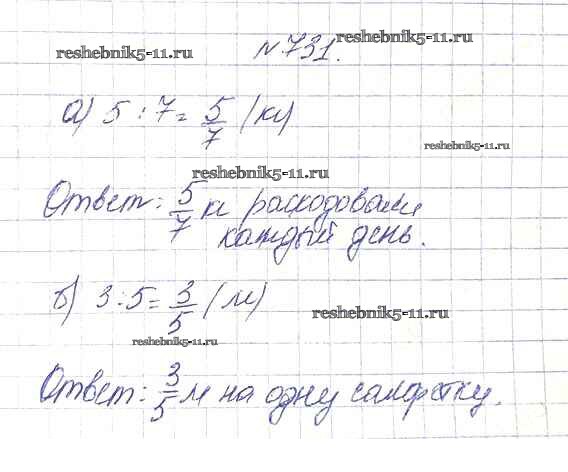 reshebnik5-11.ru
№731.
reshebnik5-11.ru
а) 5 : 7 = 5/7 (кг)
reshebnik5-11.ru
reshebnik5-11.ru
Ответ: 5/7 кг расходовали
каждый день.
б) 3 : 5 = 3/5 (м)
reshebnik5-11.ru
reshebnik5-11.ru
Ответ: 3/5 м на одну салфетку.